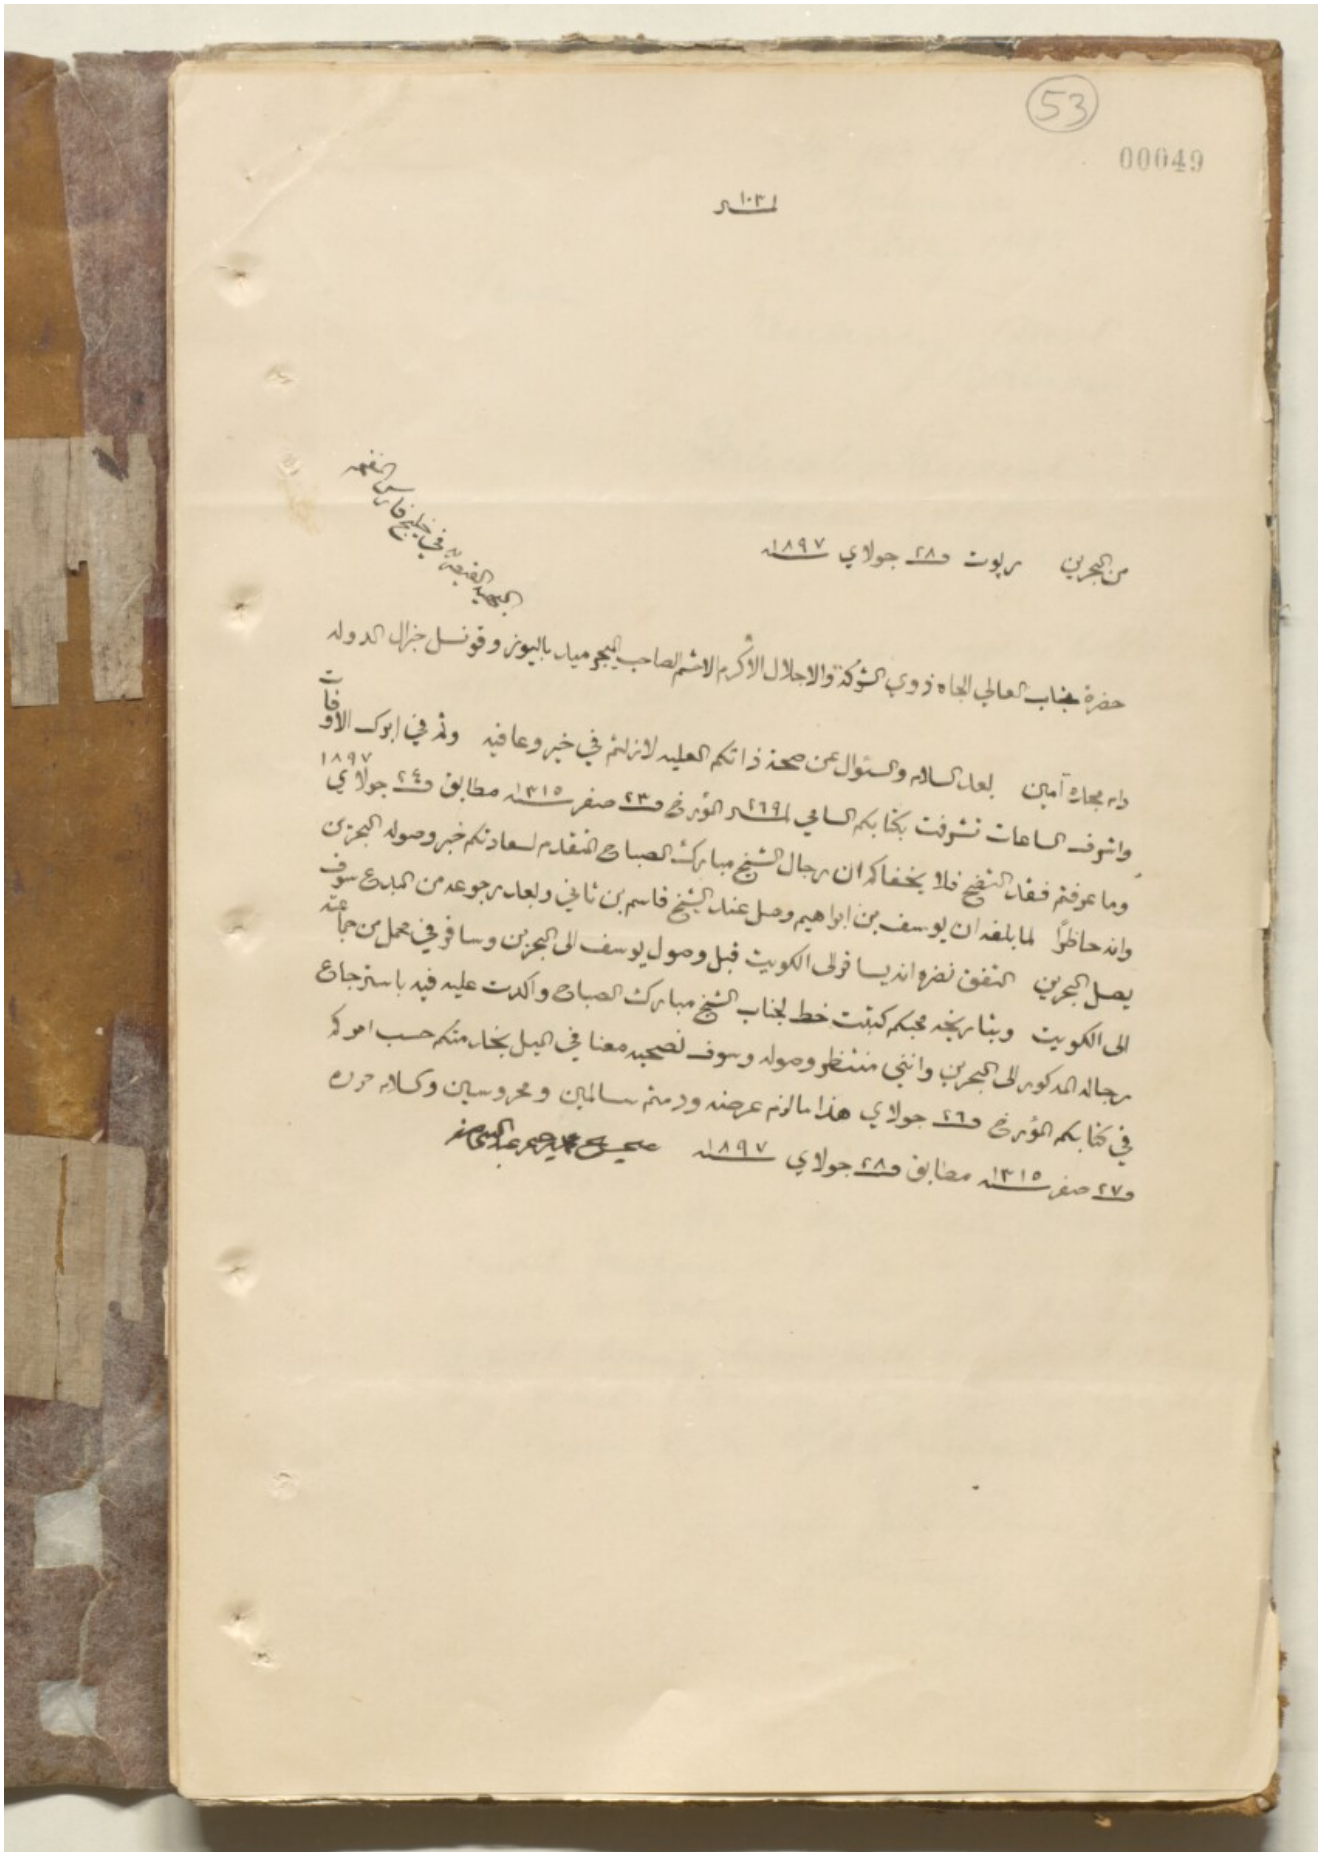 53
00049
نمرة ١٠٣
من البحرين ريبوت في ٢٨ جولاي سنة ١٨٩٧
حضرة جناب العالي الجاه ذوي الشوكة والاجلال الأكرم الافخم الصاحب الميجر ميد باليوز وقونسل جنرال الدوله
البهيه القيصريه في خليج فارس المفخم
دام مجده آمين بعد السلام والسئوال عن صحة ذاتكم العليه لازلتم في خير وعافيه وثم في ابرك الأوقات
واشرف الساعات تشرفت بكتابكم السامي نمرة ٢٦٩ المؤرخ في ٢٣ صفر سنة ١٣١٥ مطابق في ٢٤ جولاي ١٨٩٧
وما عرفتم فقد اتضح فلا يخفاكم ان رجال الشيخ مبارك الصباح المتقدم لسعادتكم خبر وصوله البحرين
وانه حاظراً لما بلغه ان يوسف بن ابراهيم وصل عند الشيخ قاسم بن ثاني وبعد رجوعه من البدع سوف
يصل البحرين اتفق نضره انه يسافر الى الكويت قبل وصول يوسف الى البحرين وسافر في محمل من جماعته
الى الكويت وبتاريخه محبكم كتبت خط لجناب الشيخ مبارك الصباح واكدت عليه فيه باسترجاع
رجاله المذكور الى البحرين وانني منتظر وصوله وسوف نصحبه معنا في الميل بخدمتكم حسب امركم
في كتابكم المؤرخ في ٢٦ جولاي هذا ما لزم عرضه ودمتم سالمين ومحروسين والسلام حرره
في ٢٧ صفر سنة ١٣١٥ مطابق في ٢٨ جولاي سنة ١٨٩٧ صحيح محمد رحيم عبدالنبي صفر